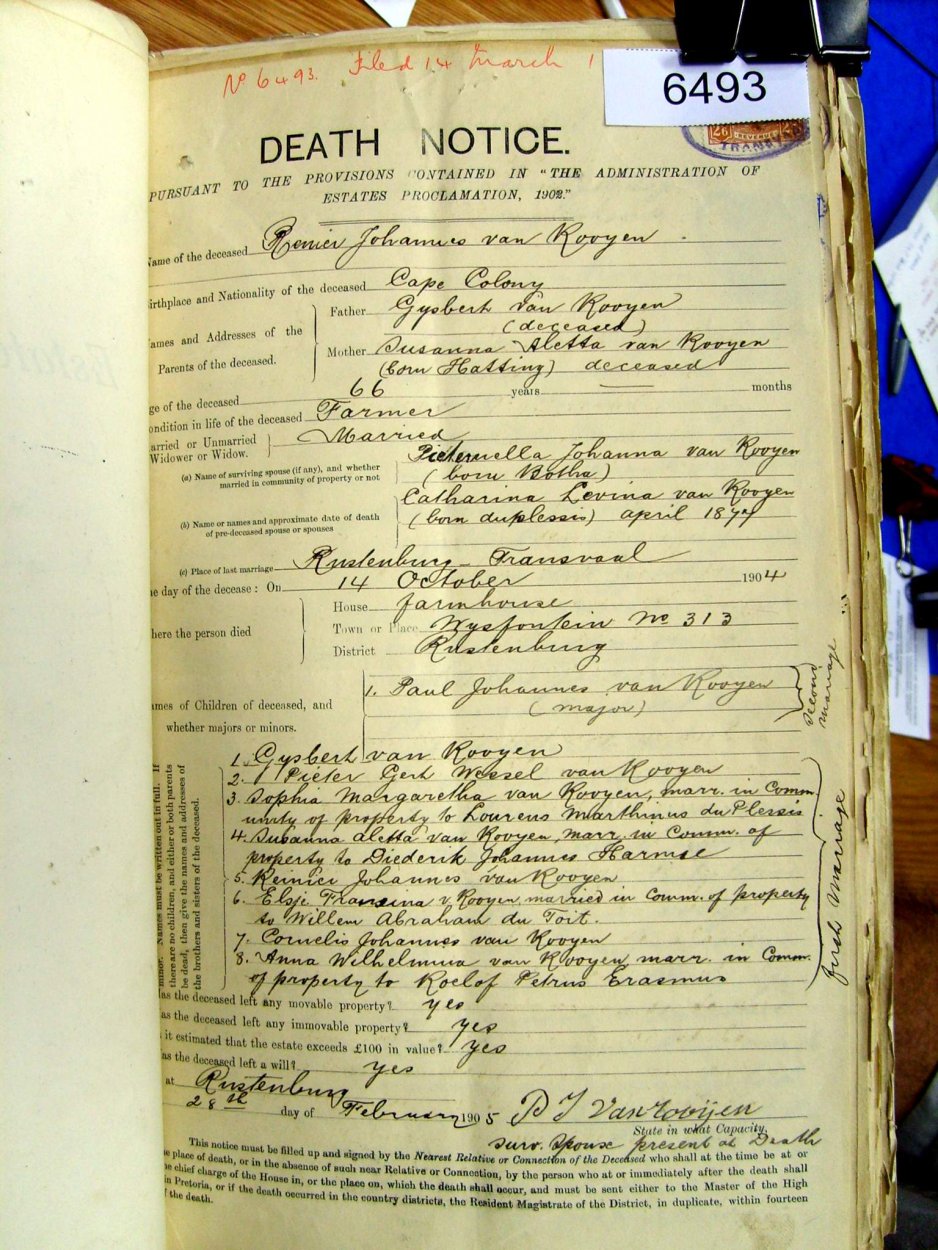 No 6493. Filed 14 March 1
6493
2/6 REVENUE 2/6
TRANS
DEATH NOTICE.
PURSUANT TO THE PROVISIONS CONTAINED IN "THE ADMINISTRATION OF
ESTATES PROCLAMATION, 1902."
Name of the deceased Renier Johannes van Rooyen
Birthplace and Nationality of the deceased Cape Colony
Names and Addresses of the Parents of the deceased. Father Gysbert van Rooyen
(deceased)
Mother Susanna Aletta van Rooyen
(born Hatting) deceased
ge of the deceased 66 years — months
ondition in life of the deceased Farmer
arried or Unmarried Widower or Widow. Married
(a) Name of surviving spouse (if any), and whether married in community of property or not Pieternella Johanna van Rooyen
(born Botha)
(b) Name or names and approximate date of death of pre-deceased spouse or spouses Catharina Levina van Rooyen
(born duplessis) april 1874
(c) Place of last marriage Rustenburg – Transvaal
he day of the decease: On 14 October 1904
here the person died House farmhouse
Town or Place Wysfontein No 313
District Rustenburg
ames of Children of deceased, and whether majors or minors. 1. Paul Johannes van Rooyen
(major)
second marriage
1. Gysbert van Rooyen
2. Pieter Gert Wessel van Rooyen
3. Sophia Margaretha van Rooyen, marr. in Comm-
unity of property to Lourens Marthinus du Plessis
4. Susanna Aletta van Rooyen, marr. in Comm. of
property to Diederik Johannes Harmse
5. Reinier Johannes van Rooyen
6. Elsje Francina v Rooyen married in Comm. of property
to Willem Abraham du Toit.
7. Cornelis Johannes van Rooyen
8. Anna Wilhelmina van Rooyen marr. in Comm.
of property to Roelof Petrus Erasmus
first marriage
minor. Names must be written out in full. If
there are no children, and either or both parents
be dead, then give the names and addresses of
the brothers and sisters of the deceased.
as the deceased left any movable property? yes
as the deceased left any immovable property? yes
it estimated that the estate exceeds £100 in value? yes
as the deceased left a will? yes
at Rustenburg
28th day of February 1905 P J Van Rooijen
State in what Capacity.
surv. spouse present at Death
This notice must be filled up and signed by the Nearest Relative or Connection of the Deceased who shall at the time be at or
e place of death, or in the absence of such near Relative or Connection, by the person who at or immediately after the death shall
e chief charge of the House in, or the place on, which the death shall occur, and must be sent either to the Master of the High
in Pretoria, or if the death occurred in the country districts, the Resident Magistrate of the District, in duplicate, within fourteen
f the death.